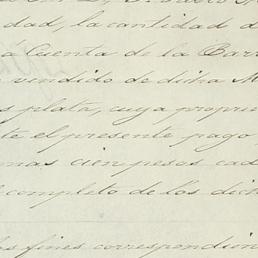 dad, la cantidad d
á Cuenta de la Barr
vendido de dicha M
s plata, cuya propie
te el presente pago
mas cien pesos cad
l completo de los dich
los fines correspondien